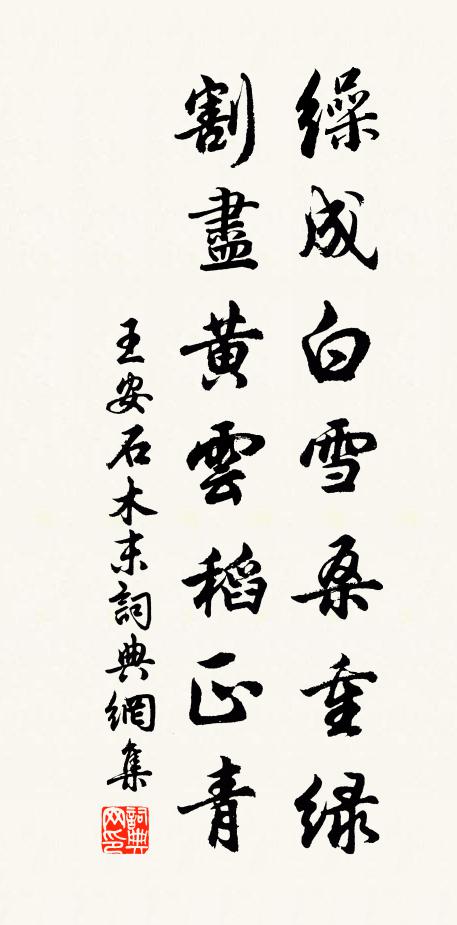 繰成白雪桑重緑
割盡黄雲稻正青
王安石木末詞典網集
詞典網印